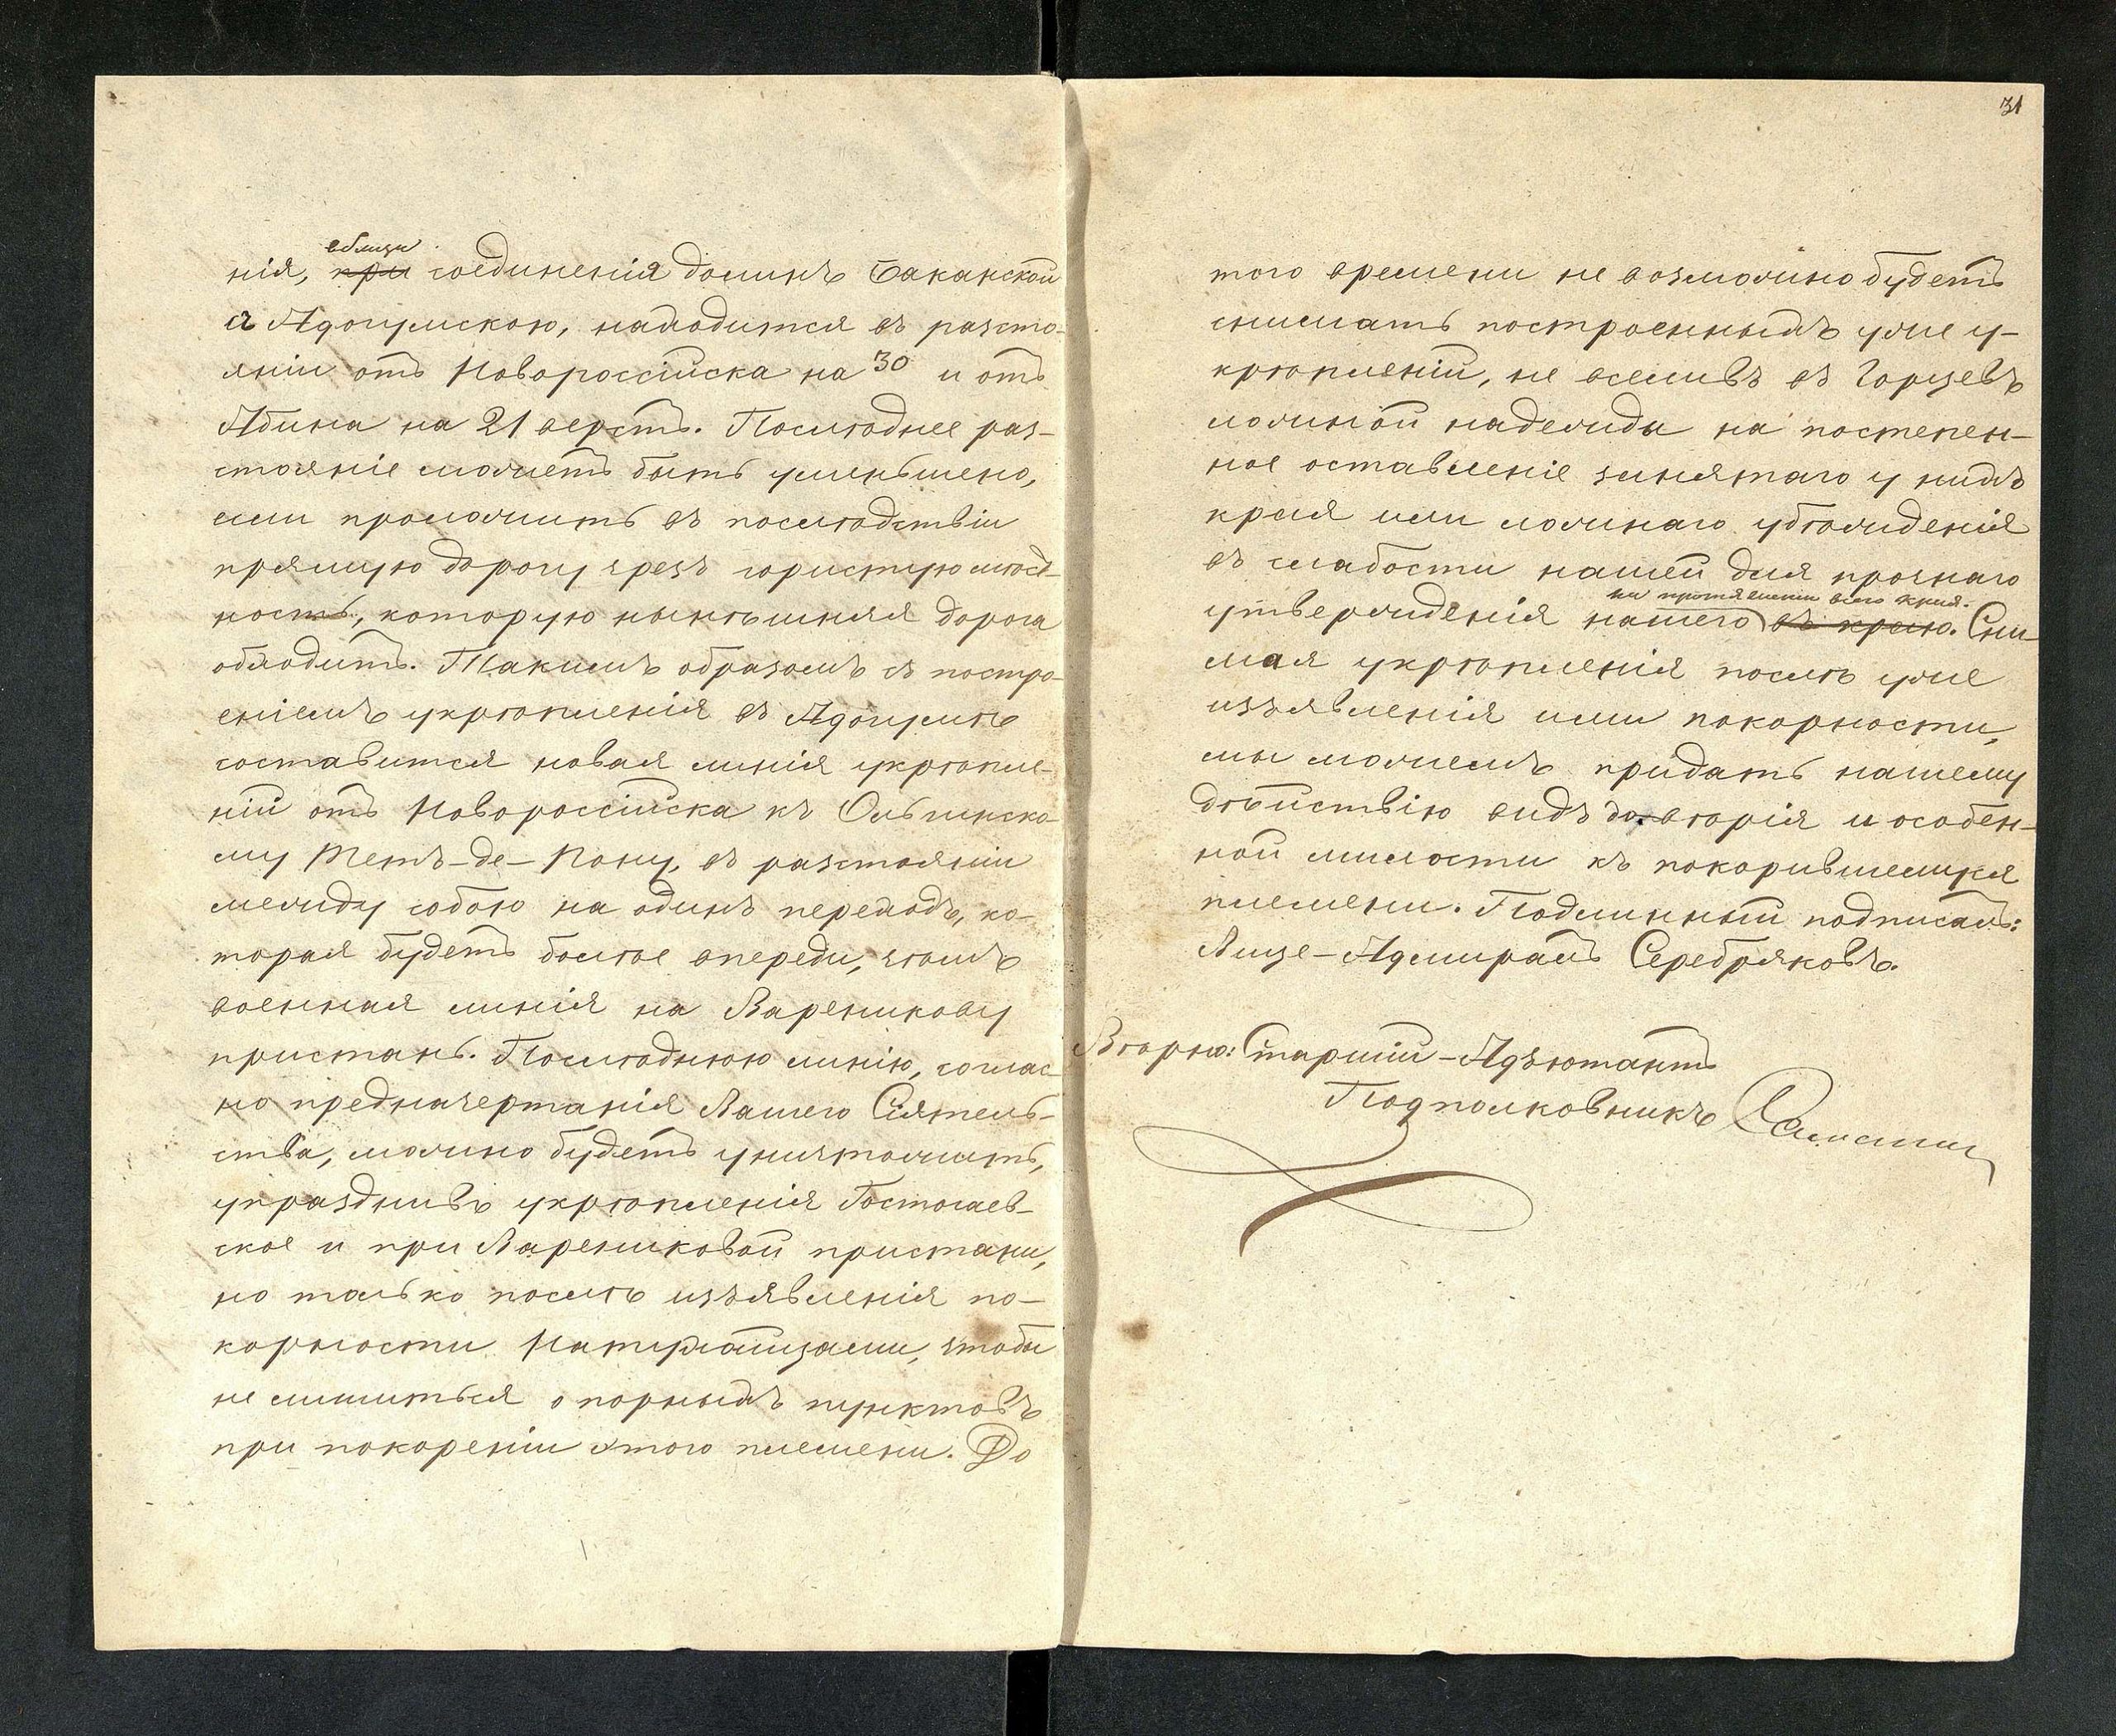 вблизи
нія, при соединенія долинъ Баканской
съ Адогумскою, находится въ разсто-
яніи отъ Новороссійска на 30 и отъ
Абина на 21 верстъ. Послѣднее раз-
стояніе можетъ быть уменьшено,
если проложить въ послѣдствіи
прямую дорогу чрезъ гористую мѣст-
ность, которую нынѣшняя дорога
обходитъ. Такимъ образомъ съ постро-
еніемъ укрѣпленія въ Адогумѣ
составится новая линія укрѣпле-
ній отъ Новороссійска къ Ольгинско-
му Тетъ-де-Пону, въ разстояніи
между собою на одинъ переходъ, ко-
торая будетъ болѣе впереди, чѣмъ
военная линія на Вареникову
пристань. Послѣднюю линію, соглас-
но предначертанія Вашего Сіятель-
ства, можно будетъ уничтожить,
упразднивъ укрѣпленія Гостогаев-
ское и при Варениковой пристани,
но только послѣ изъявленія по-
корности Натухайцами, чтобы
не лишиться опорныхъ пунктовъ
при покореніи этого племени. До
31
того времени не возможно будетъ
снимать построенныхъ уже у-
крѣпленій, не вселивъ въ Горцевъ
ложной надежды на постепен-
ное оставленіе занятаго у нихъ
края или ложнаго убѣжденія
въ слабости нашей для прочнаго
на протяженіи всего края.
утвержденія нашего въ краю. Сни-
мая укрѣпленія послѣ уже
изъявленія ими покорности,
мы можемъ придать нашему
дѣйствію видъ довѣрія и особен-
ной милости къ покорившемуся
племени. Подлинный подписалъ:
Вице-Адмиралъ Серебряковъ.
Вѣрно: Старшій-Адъютантъ
Подполковникъ